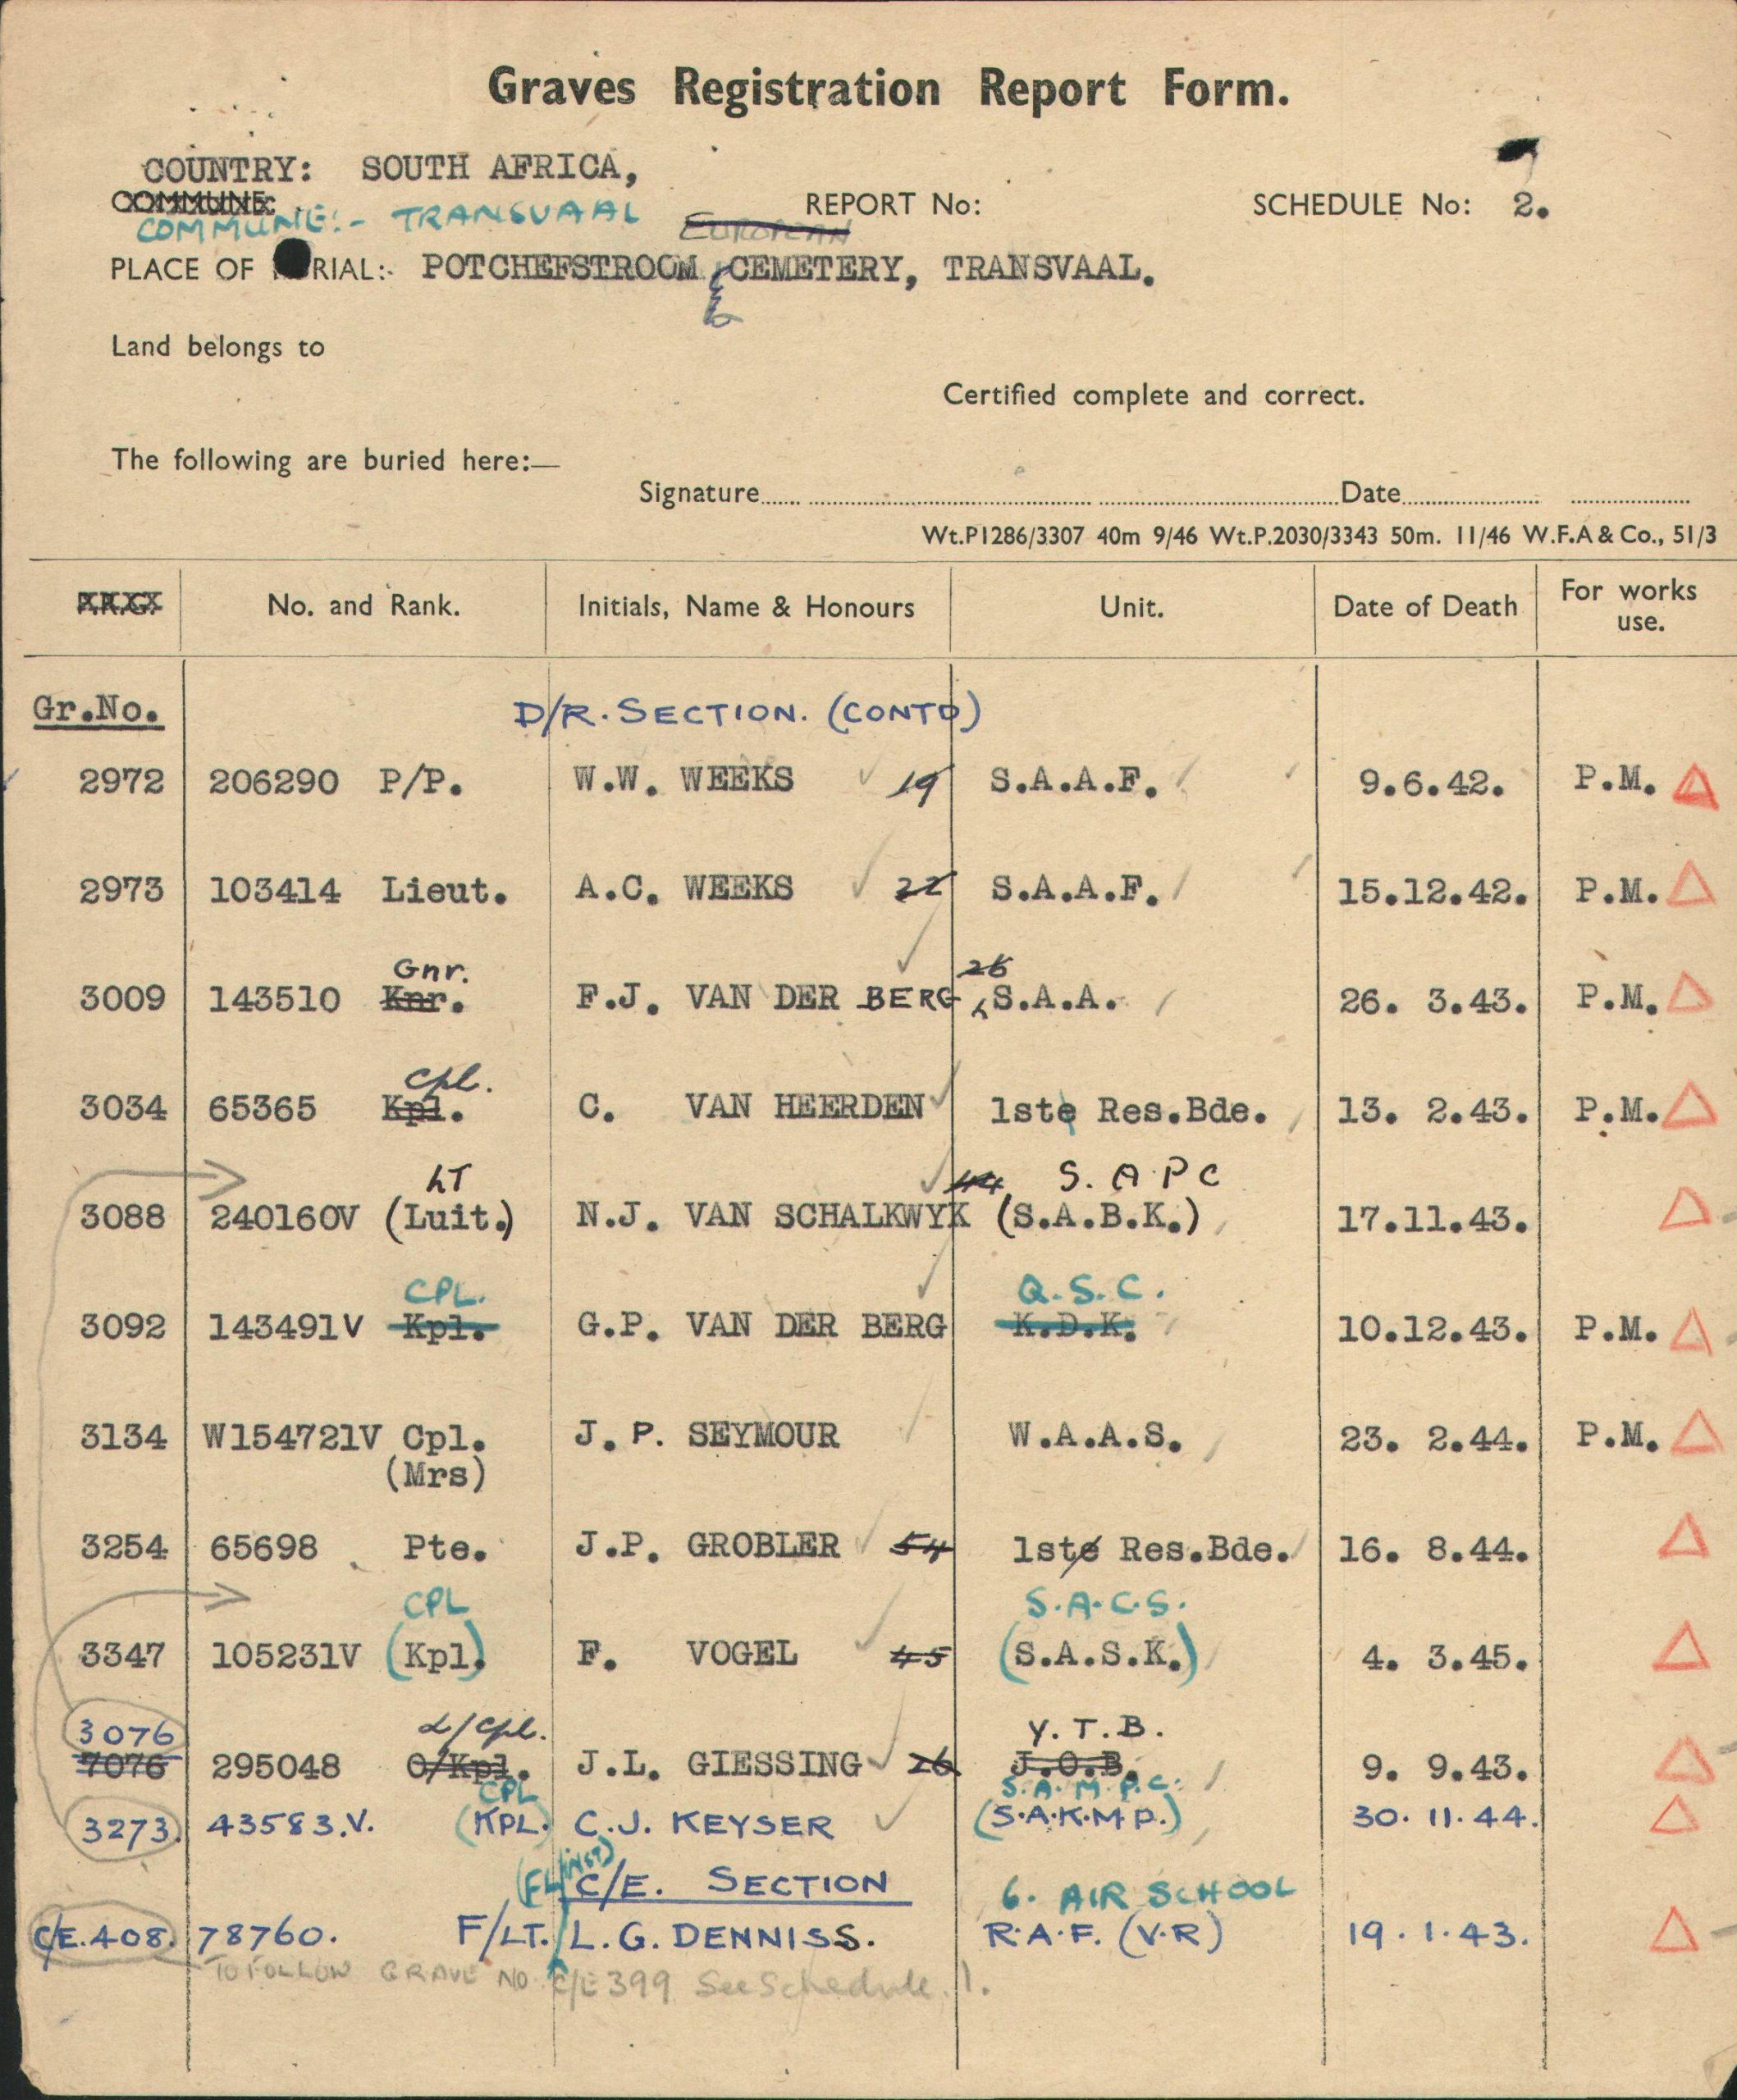 Graves Registration Report Form.
COUNTRY: SOUTH AFRICA,
COMMUNE: REPORT No: SCHEDULE No: 2.
COMMUNE:- TRANSVAAL EUROPEAN
PLACE OF RIAL:- POTCHEFSTROOM CEMETERY, TRANSVAAL.
Land belongs to
Certified complete and correct.
The following are buried here:—
Signature Date
Wt.P1286/3307 40m 9/46 Wt.P.2030/3343 50m. 11/46 W.F.A & Co., 51/3
No. and Rank. Initials, Name & Honours Unit. Date of Death For works use.
Gr.No. D/R. SECTION. (CONTD)
2972 206290 P/P. W.W. WEEKS 19 S.A.A.F. 9.6.42. P.M.
2973 103414 Lieut. A.C. WEEKS 22 S.A.A.F. 15.12.42. P.M.
Gnr. 26
3009 143510 Knr. F.J. VAN DER BERG S.A.A. 26. 3.43. P.M.
Cpl.
3034 65365 Kpl. C. VAN HEERDEN 1ste Res.Bde. 13. 2.43. P.M.
LT 44 S.A.P C
3088 240160V (Luit.) N.J. VAN SCHALKWYK (S.A.B.K.) 17.11.43.
CPL. Q.S.C.
3092 143491V Kpl. G.P. VAN DER BERG K.D.K. 10.12.43. P.M.
3134 W154721V Cpl. J.P. SEYMOUR W.A.A.S. 23. 2.44. P.M.
(Mrs)
3254 65698 Pte. J.P. GROBLER 54 1ste Res.Bde. 16. 8.44.
CPL S.A.C.S.
3347 105231V (Kpl.) F. VOGEL 45 (S.A.S.K.) 4. 3.45.
3076 L/Cpl. Y.T.B.
7076 295048 O/Kpl. J.L. GIESSING 26 J.O.B. 9. 9.43.
CPL S.A.M.P.C.
3273. 43583.V. (KPL. C.J. KEYSER (S.A.K.M P.) 30. 11. 44.
(FL/INST) C/E. SECTION 6. AIR SCHOOL
C/E.408. 78760. F/LT. L.G. DENNISS. R.A.F. (V.R) 19. 1. 43.
TO FOLLOW GRAVE NO. C/E 399 See Schedule. 1.